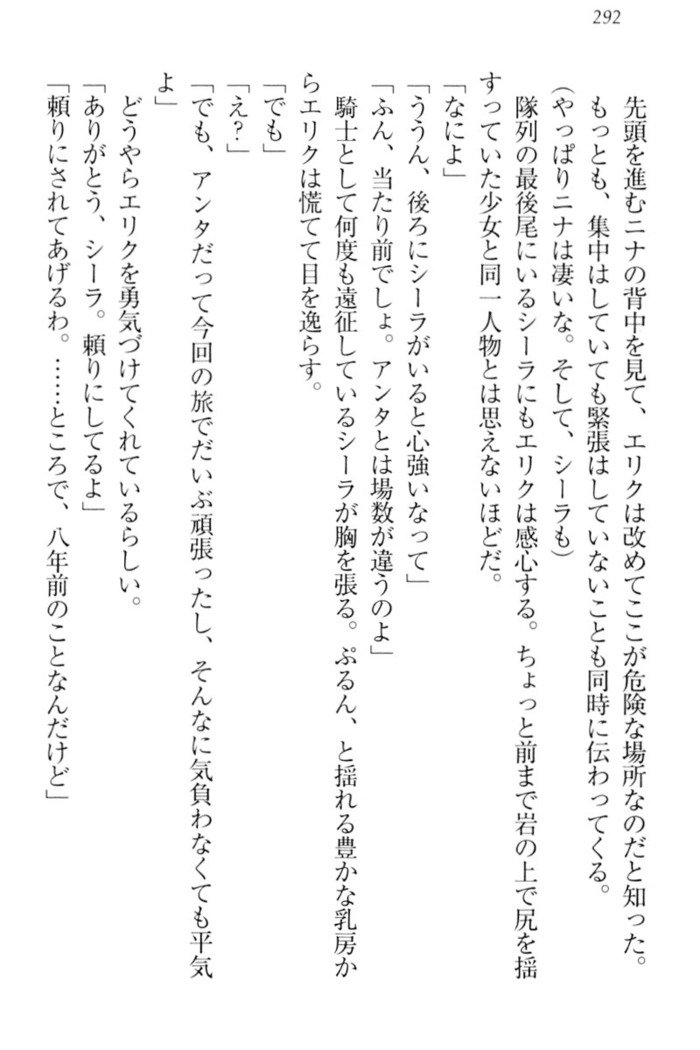 292
先頭を進むニナの背中を見て、エリクは改めてここが危険な場所なのだと知った。
もっとも、集中はしていても緊張はしていないことも同時に伝わってくる。
(やっぱりニナは凄いな。そして、シーラも)
隊列の最後尾にいるシーラにもエリクは感心する。ちょっと前まで岩の上で尻を揺
すっていた少女と同一人物とは思えないほどだ。
「なによ」
「ううん、後ろにシーラがいると心強いなって」
「ふん、当たり前でしょ。アンタとは場数が違うのよ」
騎士として何度も遠征しているシーラが胸を張る。ぷるん、と揺れる豊かな乳房か
らエリクは慌てて目を逸らす。
「でも」
「え?」
「でも、アンタだって今回の旅でだいぶ頑張ったし、そんなに気負わなくても平気
よ」
どうやらエリクを勇気づけてくれているらしい。
「ありがとう、シーラ。頼りにしてるよ」
「頼りにされてあげるわ。……ところで、八年前のことなんだけど」